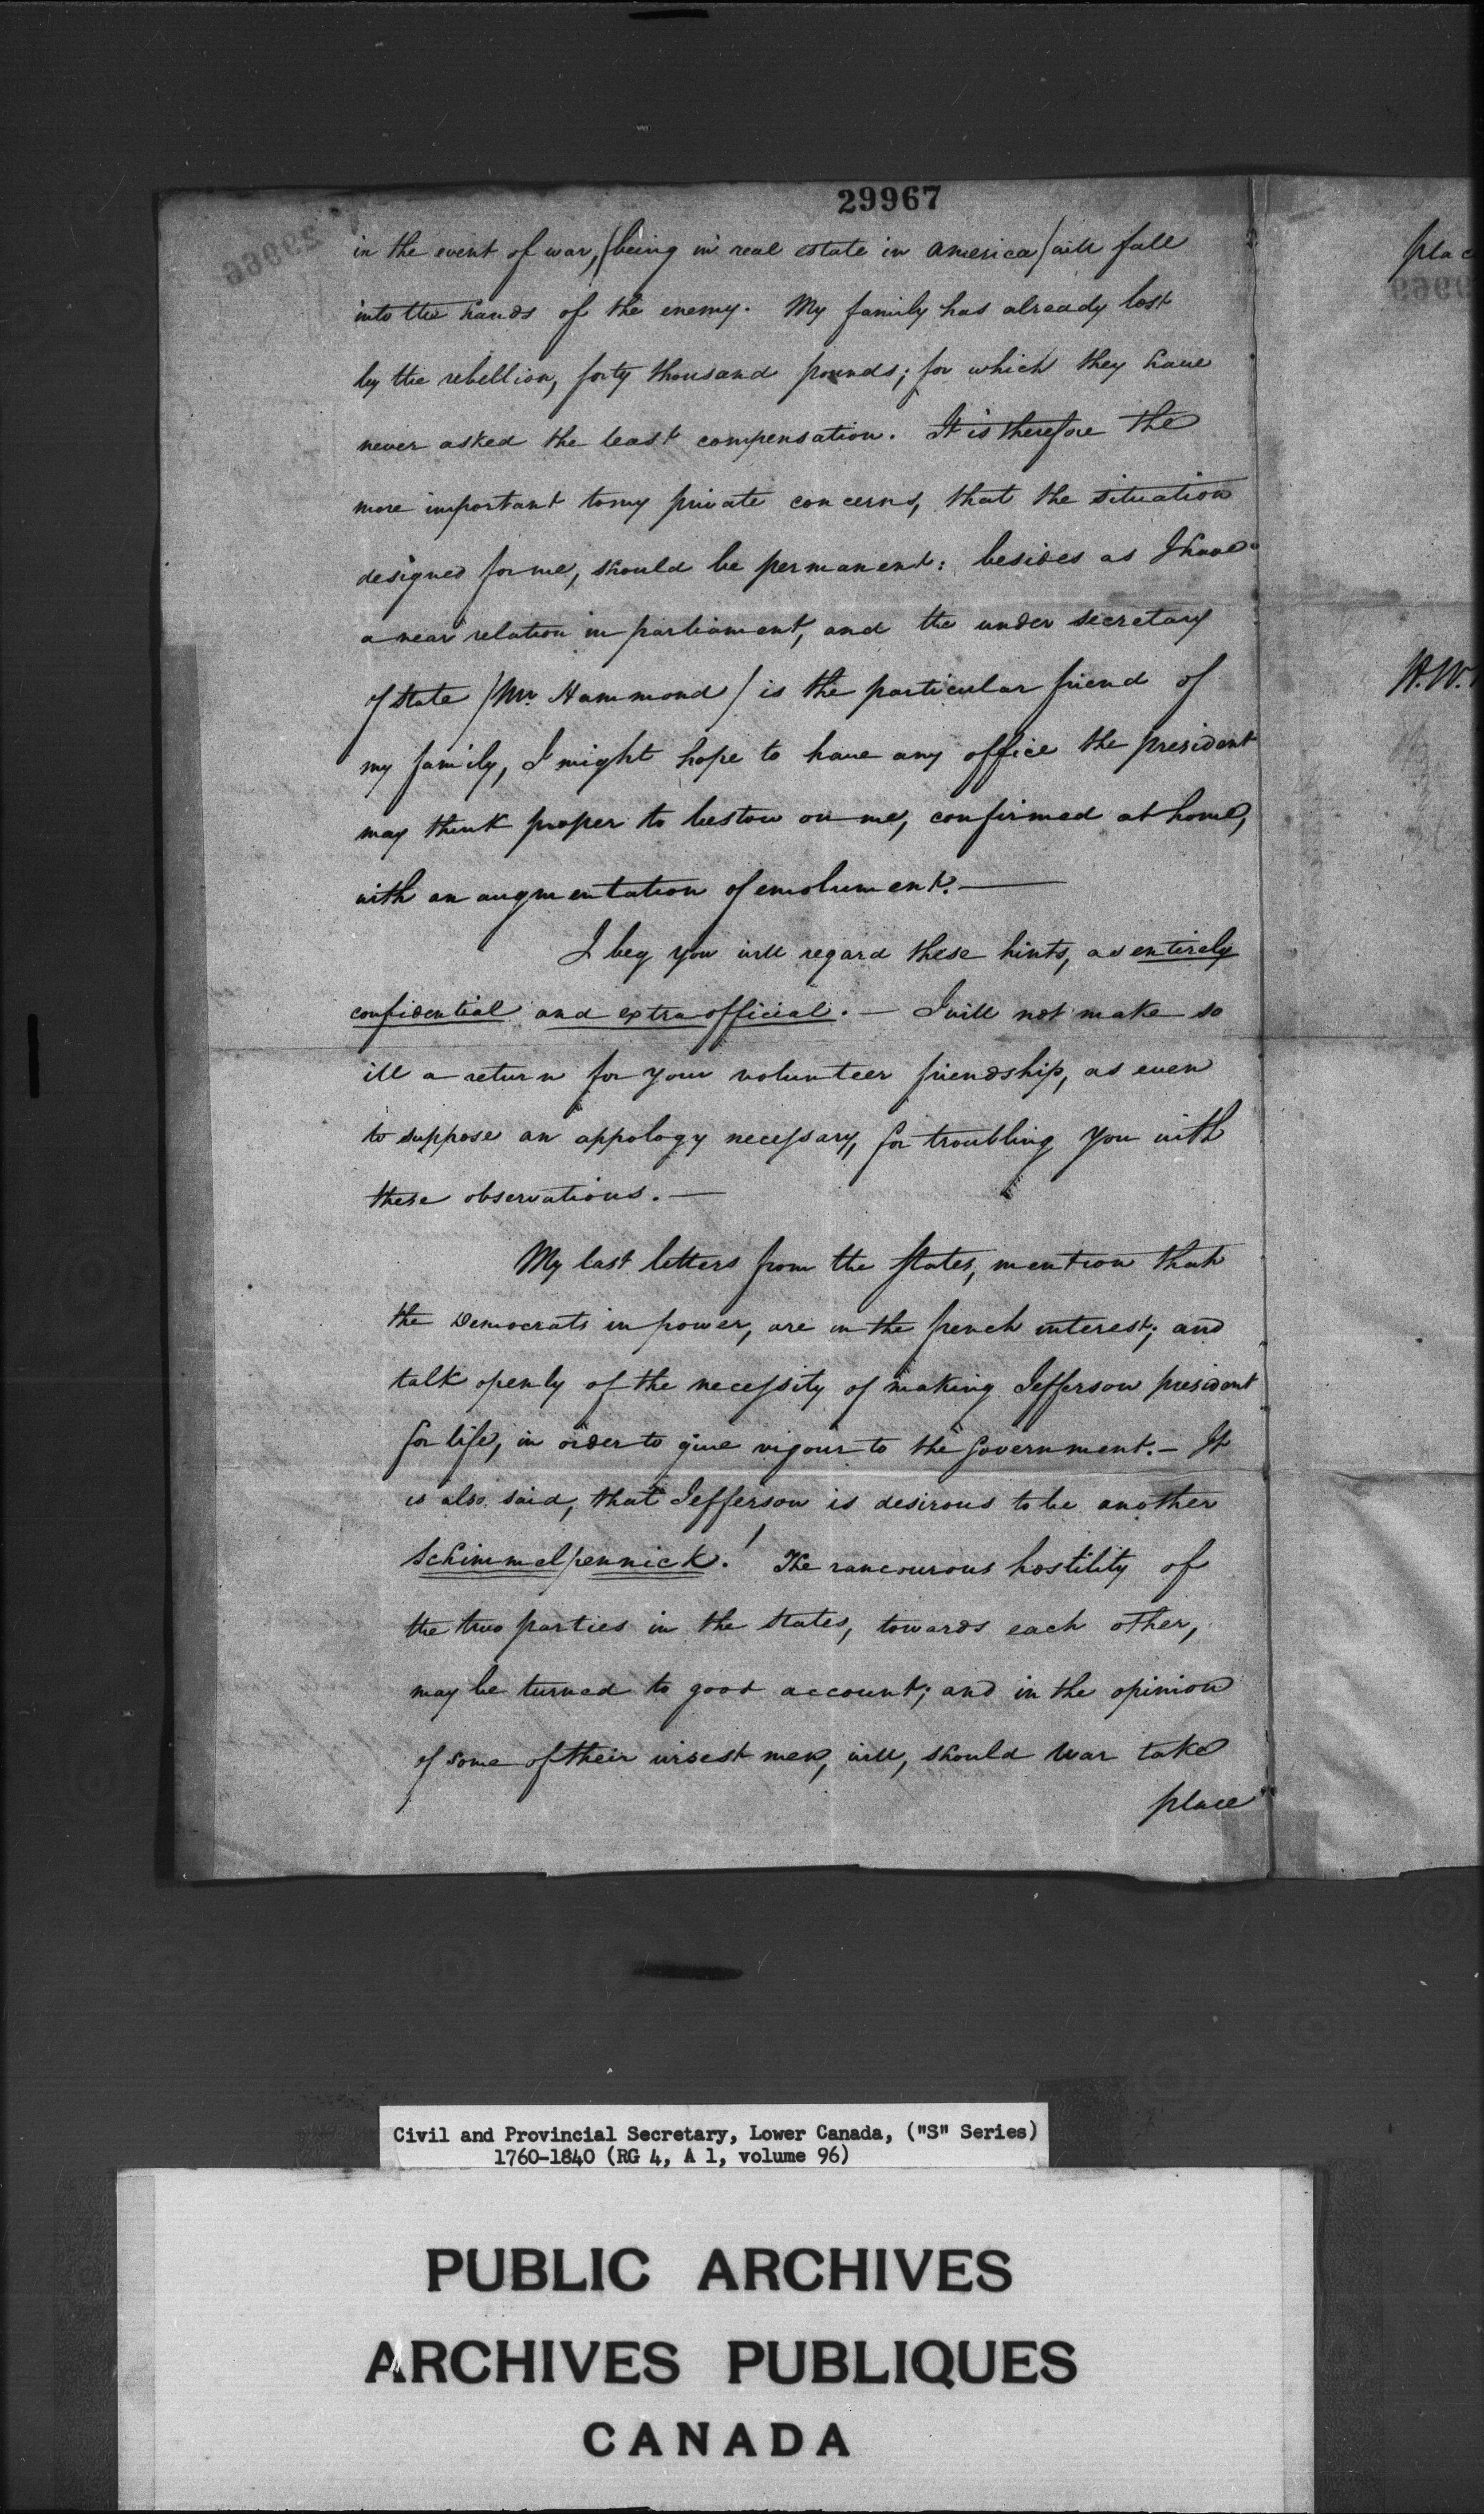 29967
in the event of war, (being in real estate in America) will fall
into the hands of the enemy. My family has already lost
by the rebellion, forty thousand pounds; for which they have
never asked the least compensation. It is therefore the
more important to my private concerns, that the situation
designed for me, should be permanent: besides as I have
a near relation in parliament, and the under secretary
of state /Mr. Hammond/ is the particular friend of
my family, I might hope to have any office the president
may think proper to bestow on me, confirmed at home,
with an augmentation of emolument. —
I beg you will regard these hints, as entirely
confidential and extra official. — I will not make so
ill a return for your volunteer friendship, as even
to suppose an appology necessary, for troubling you with
these observations. —
My last letters from the States, mention that
the Democrats in power, are in the french interest; and
talk openly of the necessity of making Jefferson president
for life, in order to give vigour to the Government. – It
is also said, that Jefferson is desirous to be another
Schimmelpennick.! The rancourous hostility of
the two parties in the States, towards each other,
may be turned to good account; and in the opinion
of some of their wisest men, will, should war take
place
plac
W.W.
Civil and Provincial Secretary, Lower Canada, ("S" Series)
1760-1840 (RG 4, A 1, volume 96)
PUBLIC ARCHIVES
ARCHIVES PUBLIQUES
CANADA